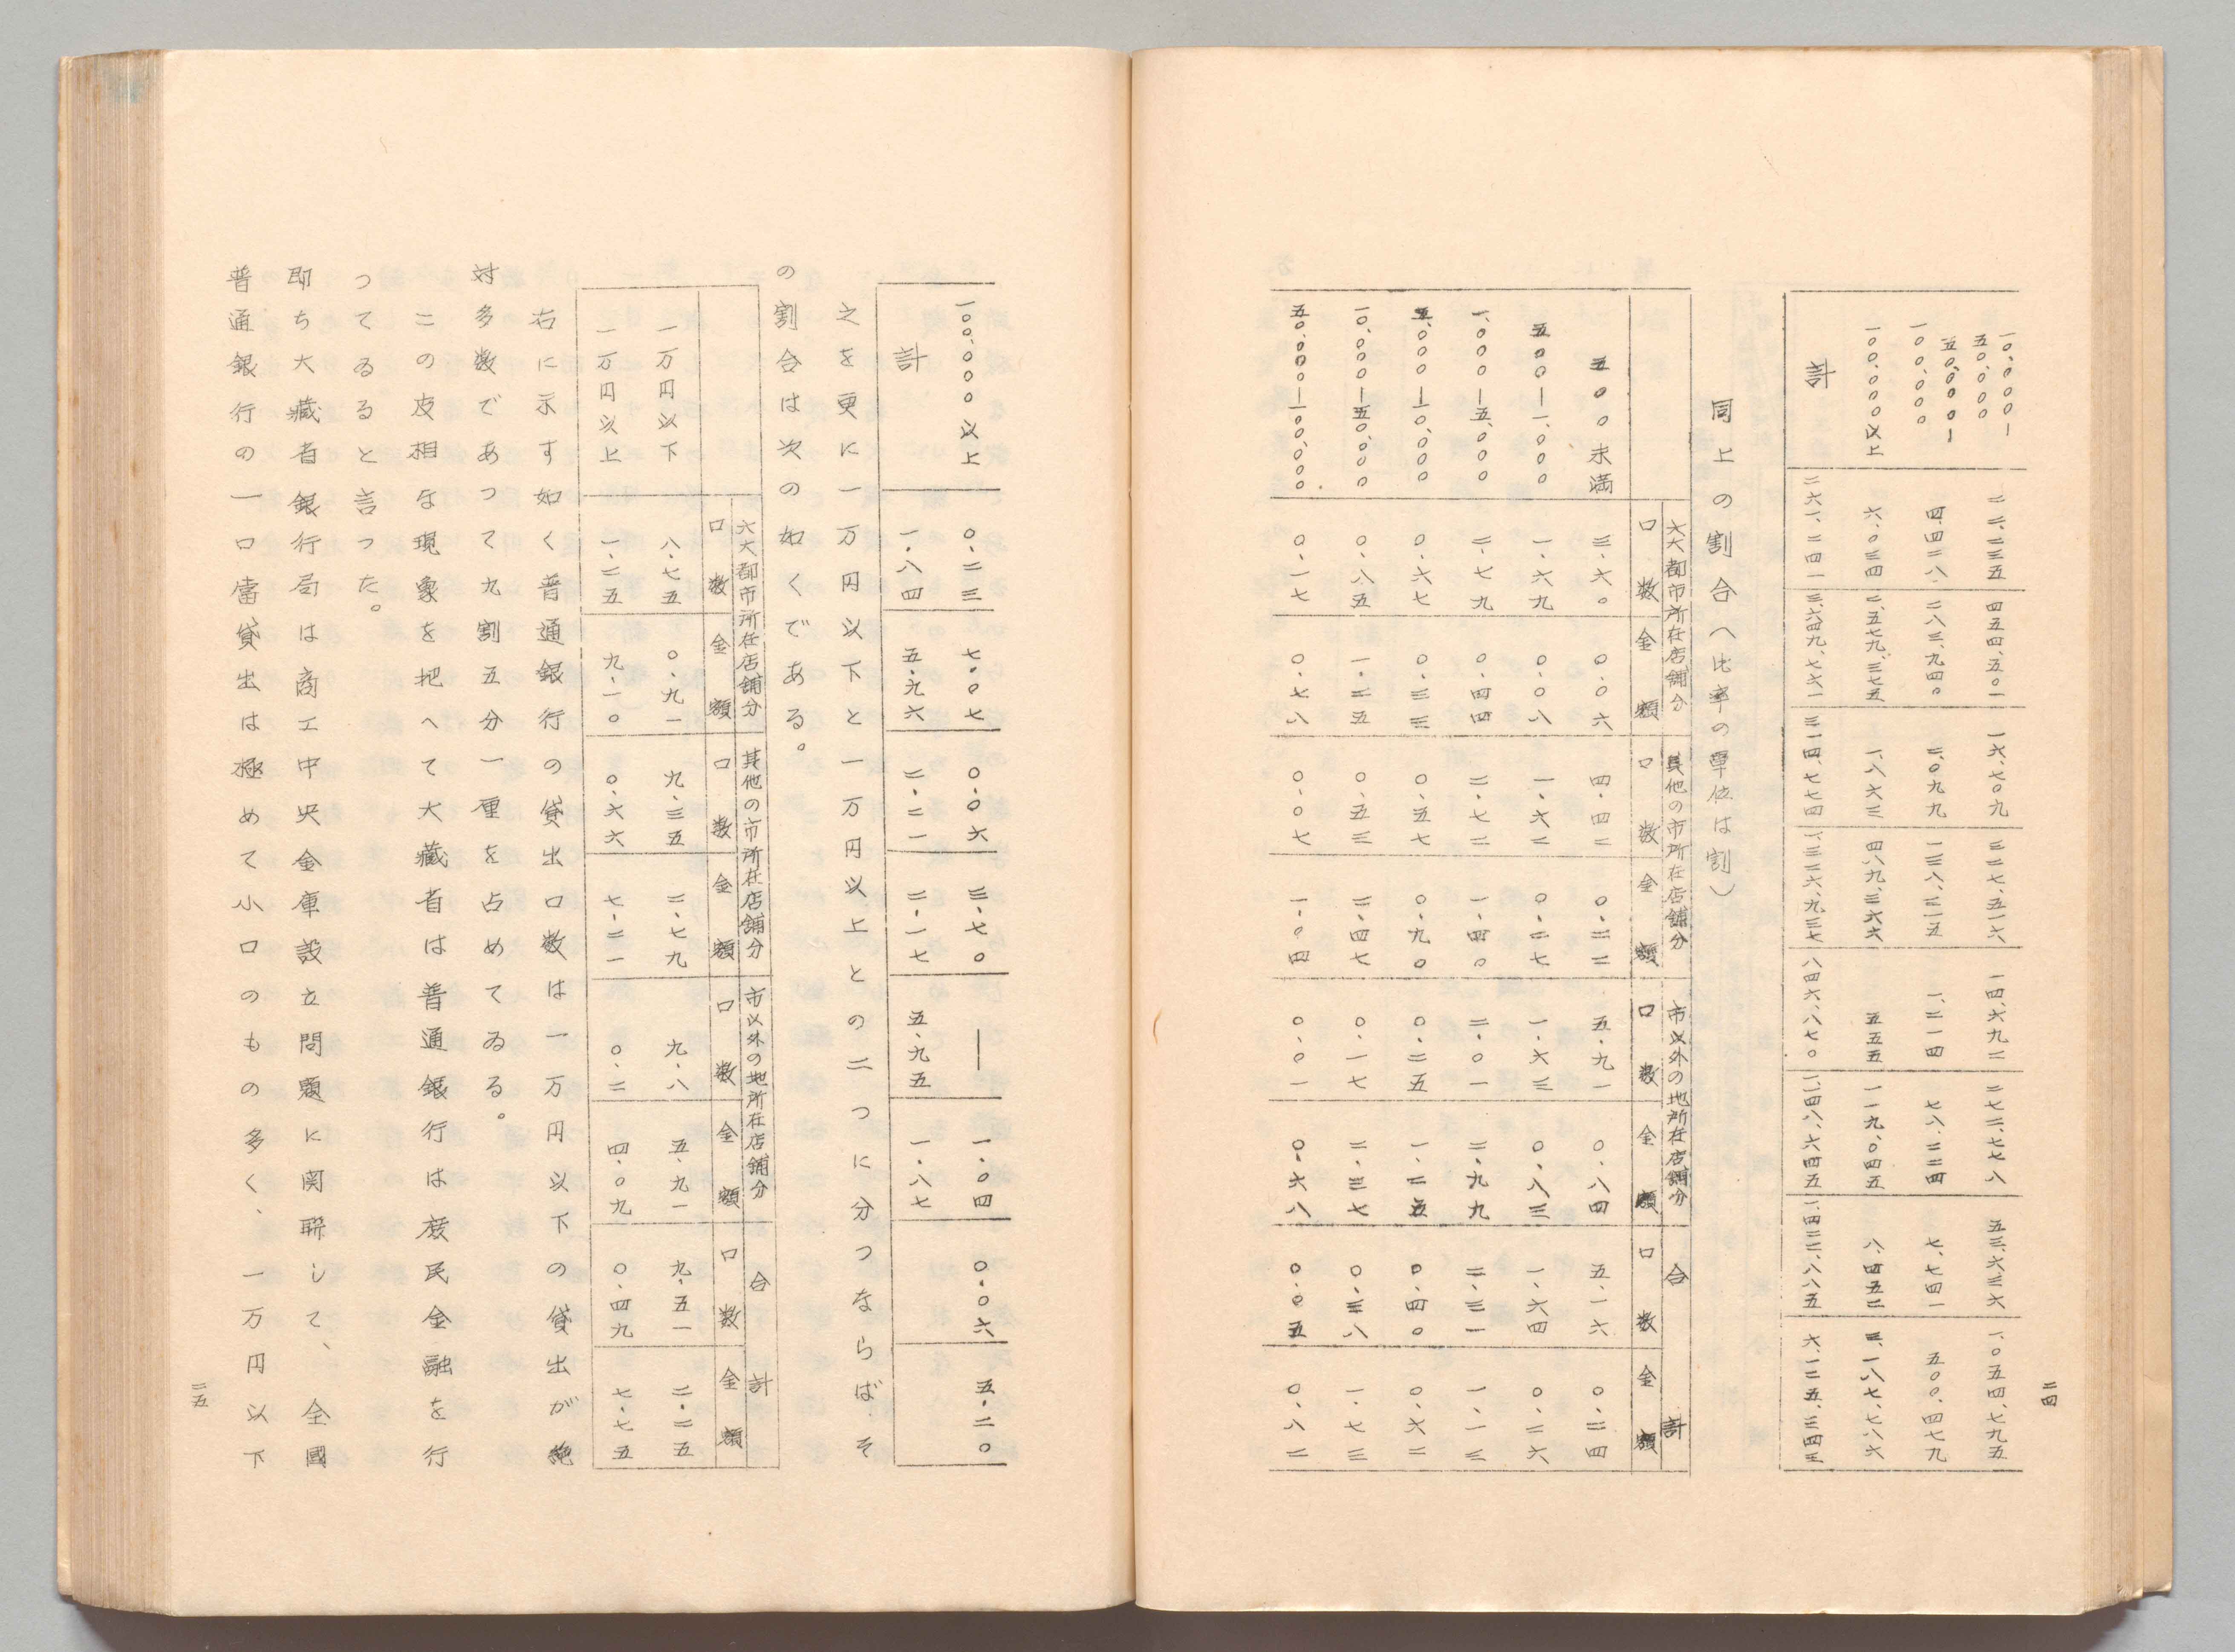 二四
一〇、〇〇〇―
五〇、〇〇〇 二二、二三五 四五四、五〇一 一六、七〇九 三二七、五一六 一四、六九二 二七二、七七八 五三、六三六 一、〇五四、七九五
五〇、〇〇〇―
一〇〇、〇〇〇 四、四二八 二八三、九四〇 二、〇九九 一三八、三一五 一、二一四 七八、二二四 七、七四一 五〇〇、四七九
一〇〇、〇〇〇以上 六、〇三四 二、五七九、三七五 一、八六三 四八九、三六六 五五五 一一九、〇四五 八、四五二 三、一八七、七八六
計 二六一、二四一 三、六四九、七六一 三一四、七七四 一、三二六、九三七 八四六、八七〇 一、一四八、六四五 一、四二二、八八五 六、一二五、三四三
同上の割合(比率の單位は割)
六大都市所在店舗分 其他の市所在店舗分 市以外の地所在店舗分 合計
口数 金額 口数 金額 口数 金額 口数 金額
五〇〇未満 三・六〇 〇・〇六 四・四二 〇・二二 五・九一 〇・八四 五・一六 〇・二四
五〇〇―一、〇〇〇 一・六九 〇・〇八 一・六二 〇・二七 一・六三 〇・八三 一・六四 〇・二六
一、〇〇〇―五、〇〇〇 二・七九 〇・四四 二・七二 一・四〇 二・〇一 二・九九 二・三一 一・一三
五、〇〇〇―一〇、〇〇〇 〇・六七 〇・三三 〇・五七 〇・九〇 〇・二五 一・二五 〇・四〇 〇・六二
一〇、〇〇〇―五〇、〇〇〇 〇・八五 一・二五 〇・五三 二・四七 〇・一七 二・三七 〇・三八 一・七三
五〇、〇〇〇―一〇〇、〇〇〇 〇・一七 〇・七八 〇・〇七 一・〇四 〇・〇一 〇・六八 〇・〇五 〇・八二
一〇〇、〇〇〇以上 〇・二三 七・〇七 〇・〇六 三・七〇 ― 一・〇四 〇・〇六 五・二〇
計 一・八四 五・九六 二・二一 二・一七 五・九五 一・八七
之を更に一万円以下と一万円以上との二つに分つならば、そ
の割合は次の如くである。
六大都市所在店舗分 其他の市所在店舗分 市以外の地所在店舗分 合計
口数 金額 口数 金額 口数 金額 口数 金額
一万円以下 八・七五 〇・九一 九・三五 二・七九 九・八 五・九一 九・五一 二・二五
一万円以上 一・二五 九・一〇 〇・六六 七・二一 〇・二 四・〇九 〇・四九 七・七五
右に示す如く普通銀行の貸出口数は一万円以下の貸出が絶
対多数であつて九割五分一厘を占めてゐる。
この皮相な現象を把へて大藏省は普通銀行は庶民金融を行
つてゐると言つた。
即ち大藏省銀行局は商工中央金庫設立問題に関聯して、全國
普通銀行の一口當貸出は極めて小口のもの多く、一万円以下
二五